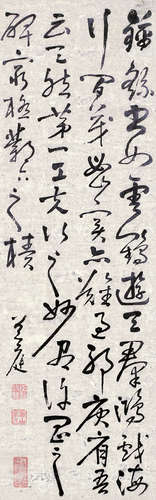 鍾繇書如雲鵠遊天羣鴻戲海
行間茂密實亦難過耶庾肩吾
云天然第一工夫次之妙盡許昌之
碑窮極鄴下之牘